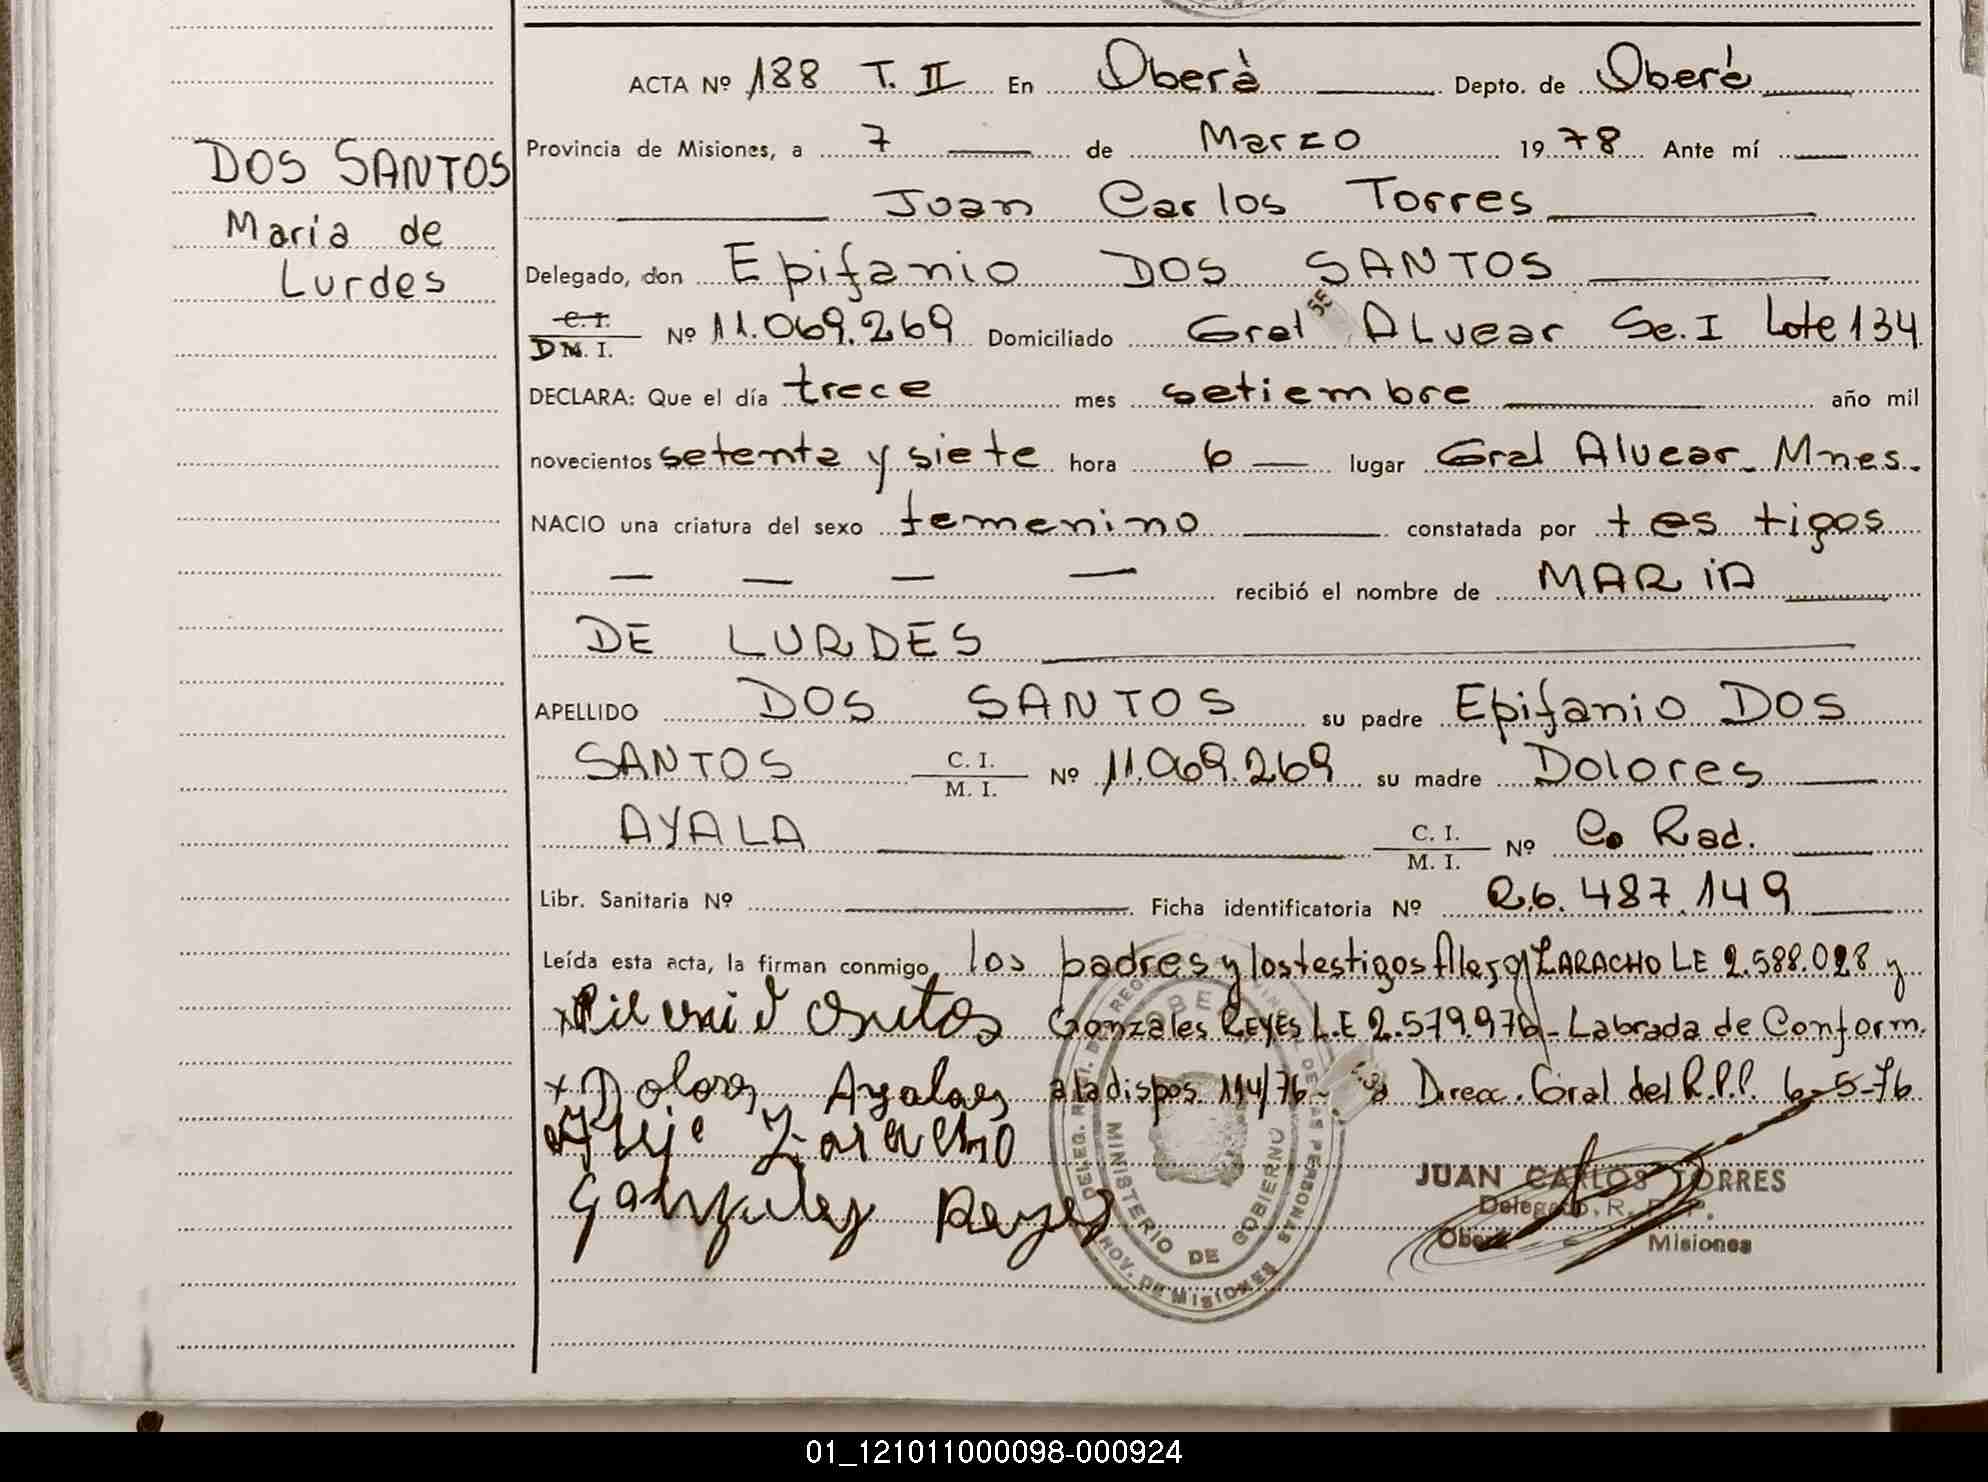 DOS SANTOS
Maria de
Lurdes
ACTA Nº 188 T. II En Oberà Depto. de Oberá
Provincia de Misiones, a 7 de Marzo 1978 Ante mí
Juan Carlos Torres
Delegado, don Epifanio DOS SANTOS
C. I.
DN. I. Nº 11.069.269 Domiciliado Gral Alvear Se. I Lote 134
DECLARA: Que el día trece mes setiembre año mil
novecientos setenta y siete hora 6 lugar Gral Alvear. Mnes.
NACIO una criatura del sexo femenino constatada por testigos
recibió el nombre de MARIA
DE LURDES
APELLIDO DOS SANTOS su padre Epifanio DOS
SANTOS C. I. / M. I. Nº 11.069.269 su madre Dolores
AYALA C. I. / M. I. Nº C. Rad.
Libr. Sanitaria Nº Ficha identificatoria Nº R.6.487.149
Leída esta acta, la firman conmigo, los padres y los testigos LARACHO LE 2.588.028 y
Gonzales REYES L.E 2.579.976 - Labrada de Conform.
x Dolores Ayala a la dispos. 114/76 - Direcc. Gral del R.P.P. 6-5-76
Gonzales Reyes
DELEG. REGTI. PROV. DE MISIONES DE LAS PERSONAS
MINISTERIO DE GOBIERNO
JUAN CARLOS TORRES
Delegado, R. P. P.
Oberá Misiones
01_121011000098-000924